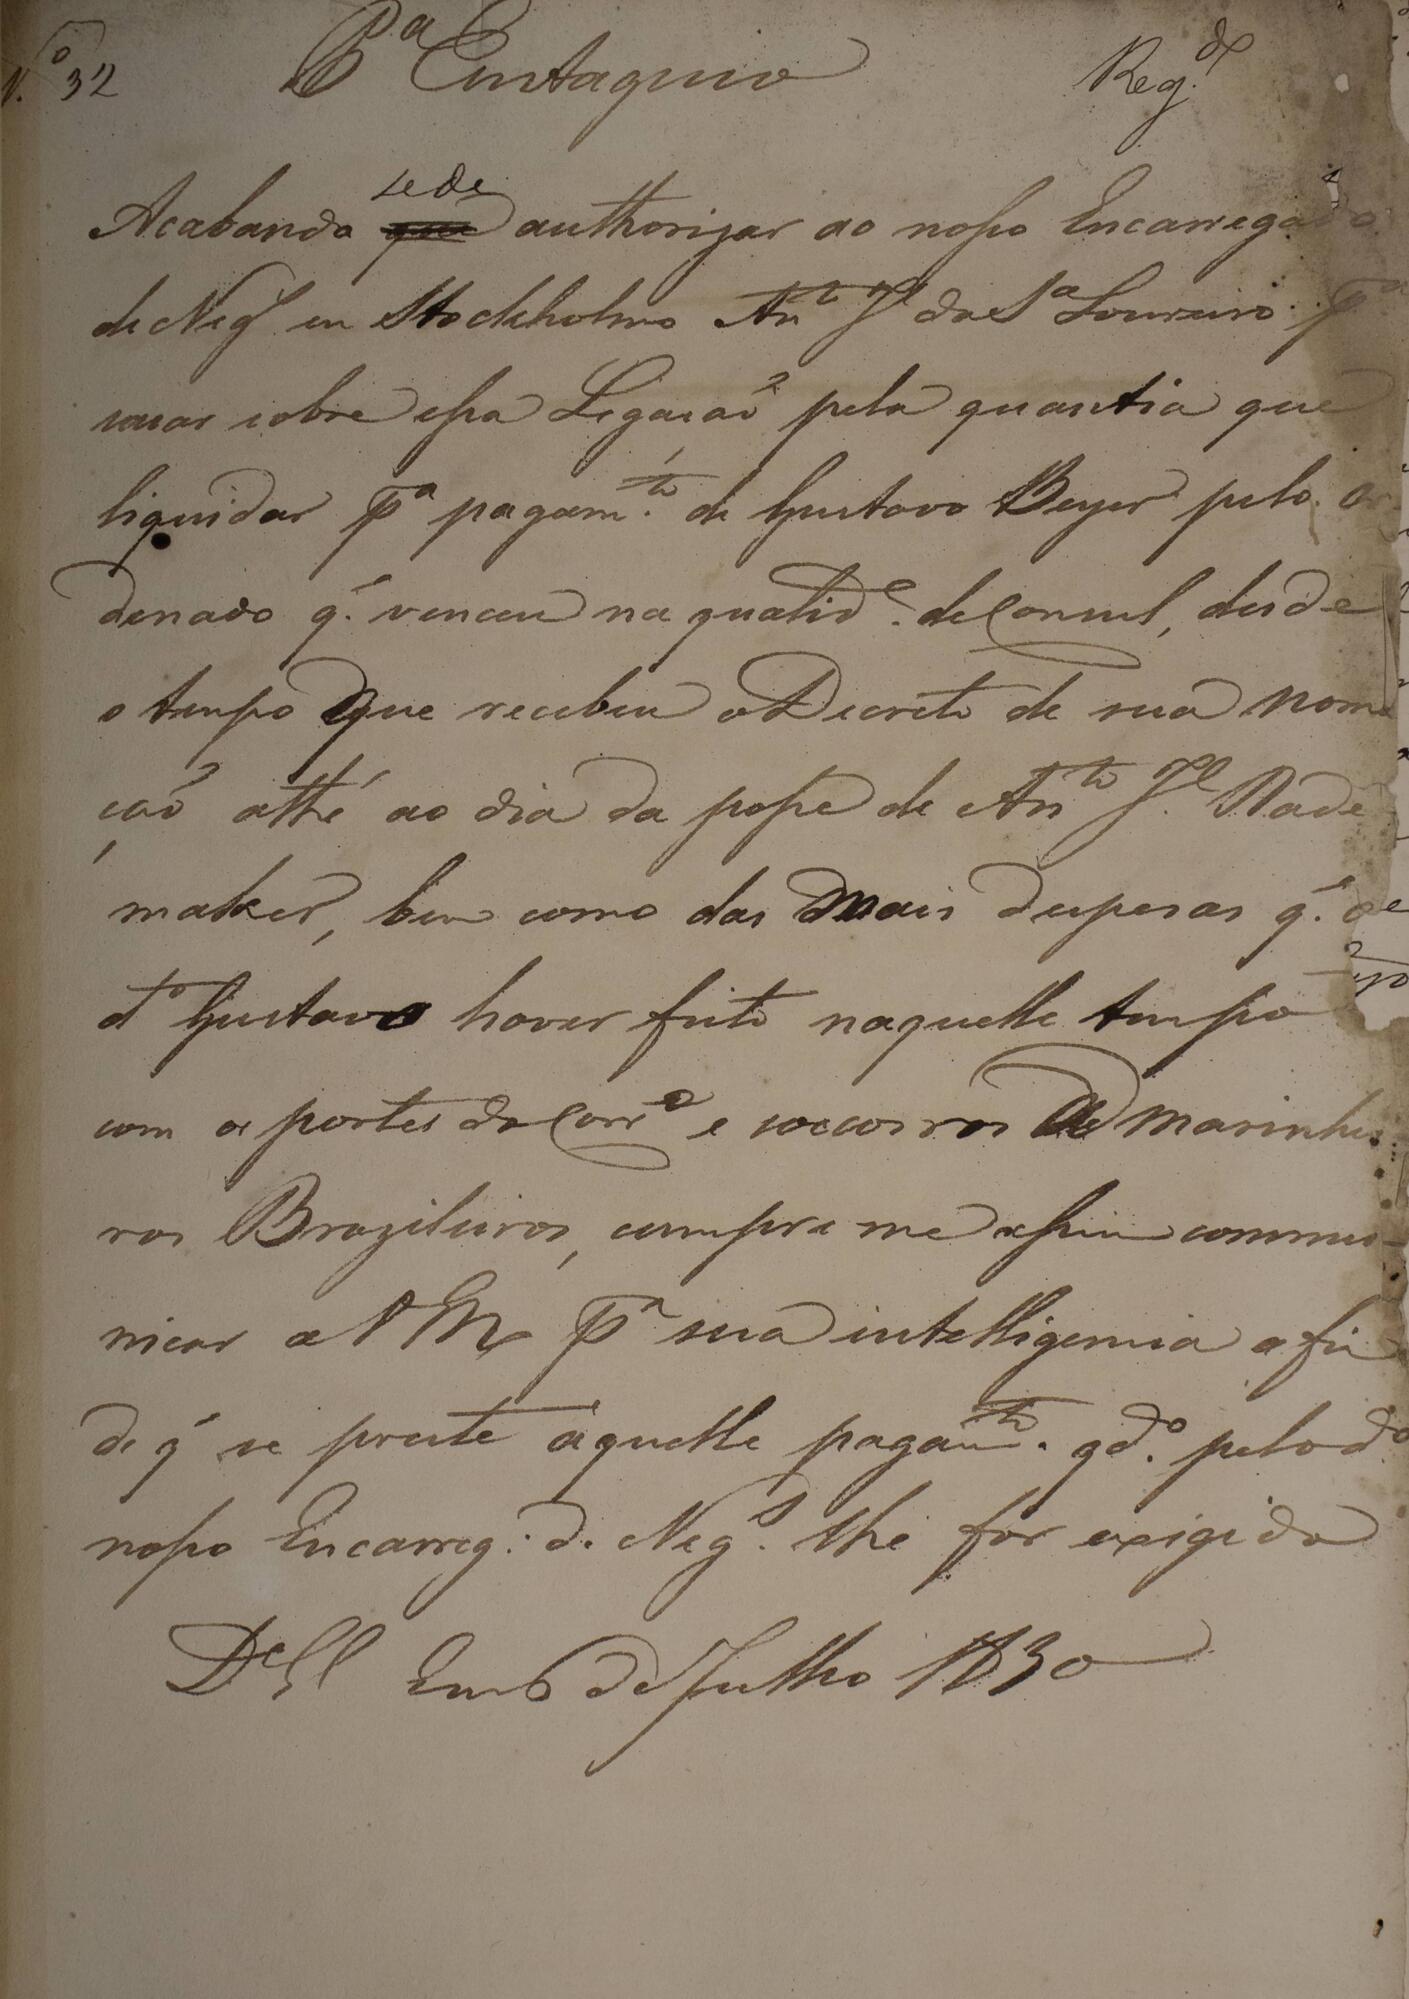 N.º 32 Pª Eustaquio Reg.de
Acabando se de authorizar ao nosso Encarregado
de Negs em Stockholmo Anto Je da Sª Loureiro pª
sacar sobre essa Legação pela quantia que
liquidar pª pagam.to de Gustavo Beyer pelo or
denado q.' venceu na qualide. de Consul, desde
o tempo que recebeu o Decreto de sua nomea
ção athé ao dia da posse de Anto Je. Rade
maker, bem como das mais despesas q.' o
do Gustavo houver feito naquelle tempo
com os portes da Corra e soccorros de Marinhei
ros Brazileiros, cumpre me assim commu-
nicar a VM pª sua intelligencia a fim
de q' se preste áquelle pagamto. qdo. pelo do
nosso Encarreg. de Negs. lhe for exigido
De Sª Em 6 de Julho 1830